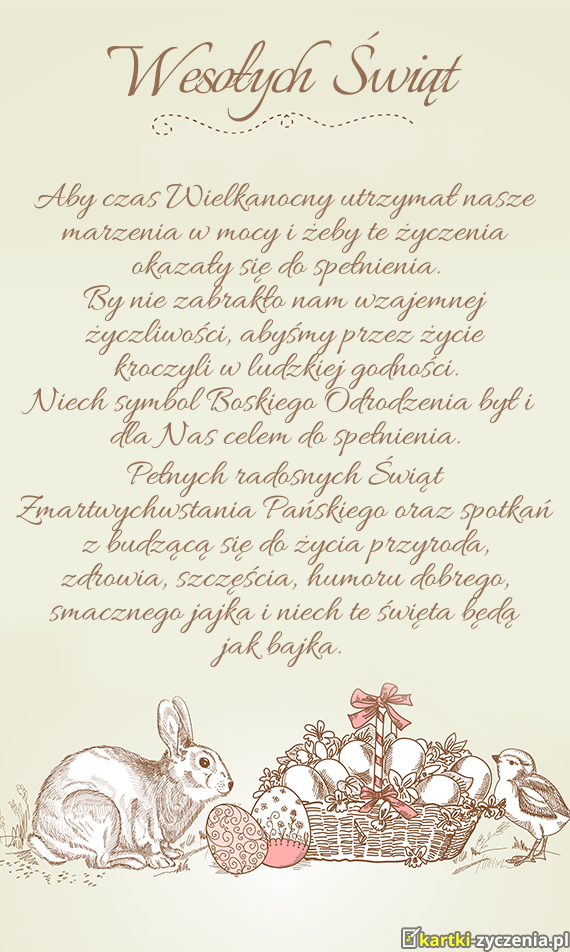 Wesołych Świąt
Aby czas Wielkanocny utrzymał nasze
marzenia w mocy i żeby te życzenia
okazały się do spełnienia.
By nie zabrakło nam wzajemnej
życzliwości, abyśmy przez życie
kroczyli w ludzkiej godności.
Niech symbol Boskiego Odrodzenia był i
dla Nas celem do spełnienia.
Pełnych radosnych Świąt
Zmartwychwstania Pańskiego oraz spotkań
z budzącą się do życia przyroda,
zdrowia, szczęścia, humoru dobrego,
smacznego jajka i niech te święta będą
jak bajka.
kartki-zyczenia.pl